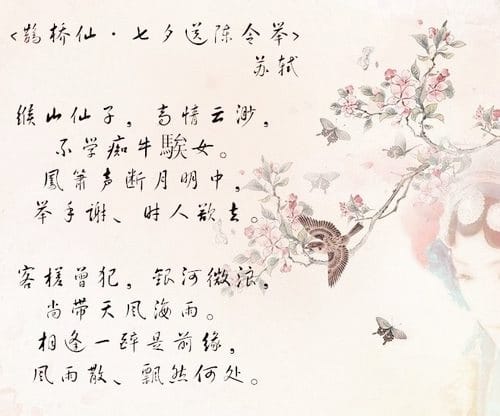 <鹊桥仙·七夕送陈令举>
苏轼
缑山仙子，高情云渺，
不学痴牛騃女。
凤箫声断月明中，
举手谢、时人欲去。
客槎曾犯，银河微浪，
尚带天风海雨。
相逢一醉是前缘，
风雨散、飘然何处。